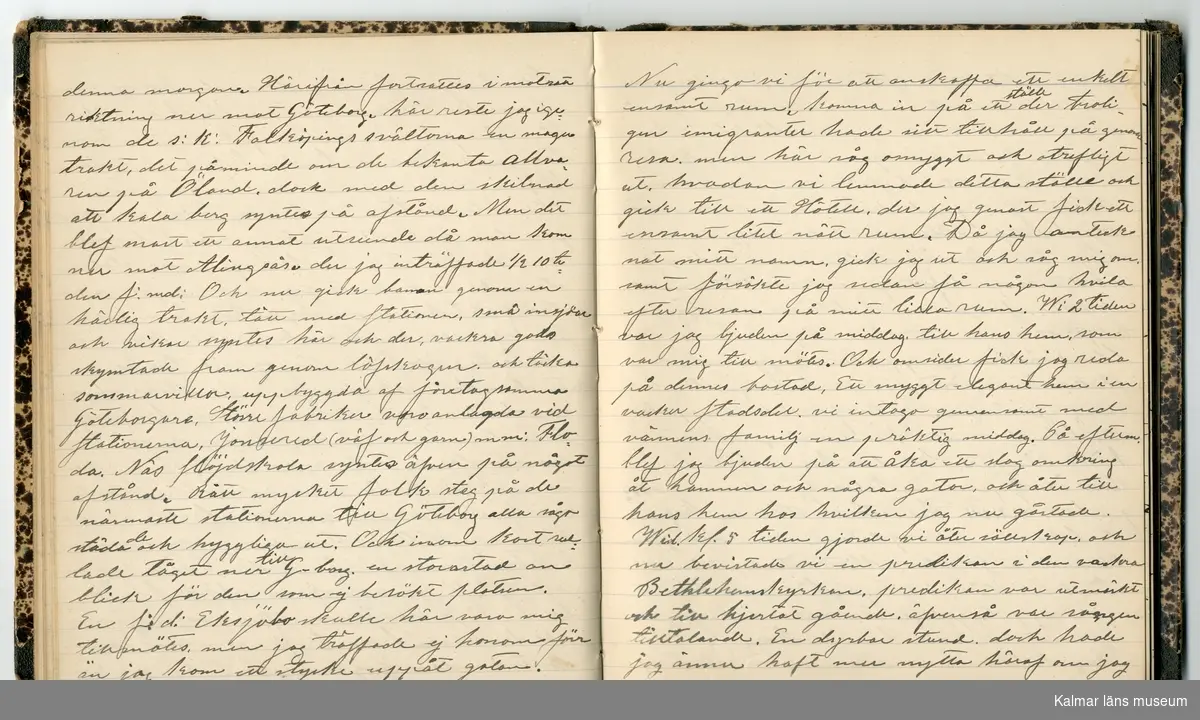 denna morgon. Härifrån fortsattes i motsatt
riktning ner mot Göteborg, här reste jag ige-
nom de s: k: Falköpings svältorna en mager
trakt, det påminde om de bekanta Allva-
ren på Öland, dock med den skilnad
att kala berg syntes på afstånd. Men det
blef snart ett annat utseende då man kom
ner mot Alingsås, der jag inträffade 1/2 10 ti-
den f. md: Och nu gick banan genom en
härlig trakt, tätt med stationer, små insjöar
och vikar syntes här och der, vackra gods
skymtade fram genom löfskogen, och täcka
sommarvillor, uppbyggda af företagsamma
Göteborgare, Större fabriker voro anlagda vid
stationerna, Jonsered (väf och garn) m.m: Flo-
da. Nääs slöjdskola syntes äfven på något
afstånd. Rätt mycket folk steg på de
närmaste stationerna till Göteborg alla sågo
städade och hyggliga ut. Och inom kort rul-
lade tåget ner till G-borg. en storartad an
blick för den som ej besökt platsen.
En f. d: Eksjöbo skulle här vara mig
till mötes, men jag träffade ej honom för
än jag kom ett stycke uppåt gatan.
Nu gingo vi för att anskaffa ett enkelt
ensamt rum, komma in på ett ställe der troli-
gen emigranter hade sitt tillhåll på genom
resa. men här såg omyggt och otrefligt
ut. hvadan vi lemnade detta ställe och
gick till ett Hôtell, der jag genast fick ett
ensamt litet nätt rum. Då jag anteck
nat mitt namn, gick jag ut och såg mig om.
samt försökte jag sedan få någon hvila
efter resan på mitt lilla rum. Wi 2 tiden
var jag bjuden på middag till hans hem, som
var mig till mötes. Och omsider fick jag reda
på dennes bostad, Ett myggt elegant hem i en
vacker stadsdel. vi intago gemensamt med
vännens familj en präktig middag. På efterm.
blef jag bjuden på att åka ett slag omkring
åt hamnen och några gator, och åter till
hans hem hos hvilken jag nu gästade.
Wid kl. 5 tiden gjorde vi åter sällskap, och
nu bevistade vi en predikan i den vackra
Bethlehemskyrkan, predikan var utmärkt
och till hjertat gående, äfvenså var sången
tilltalande. En dyrbar stund. dock hade
jag ännu haft mer nytta häraf om jag
Kalmar läns museum